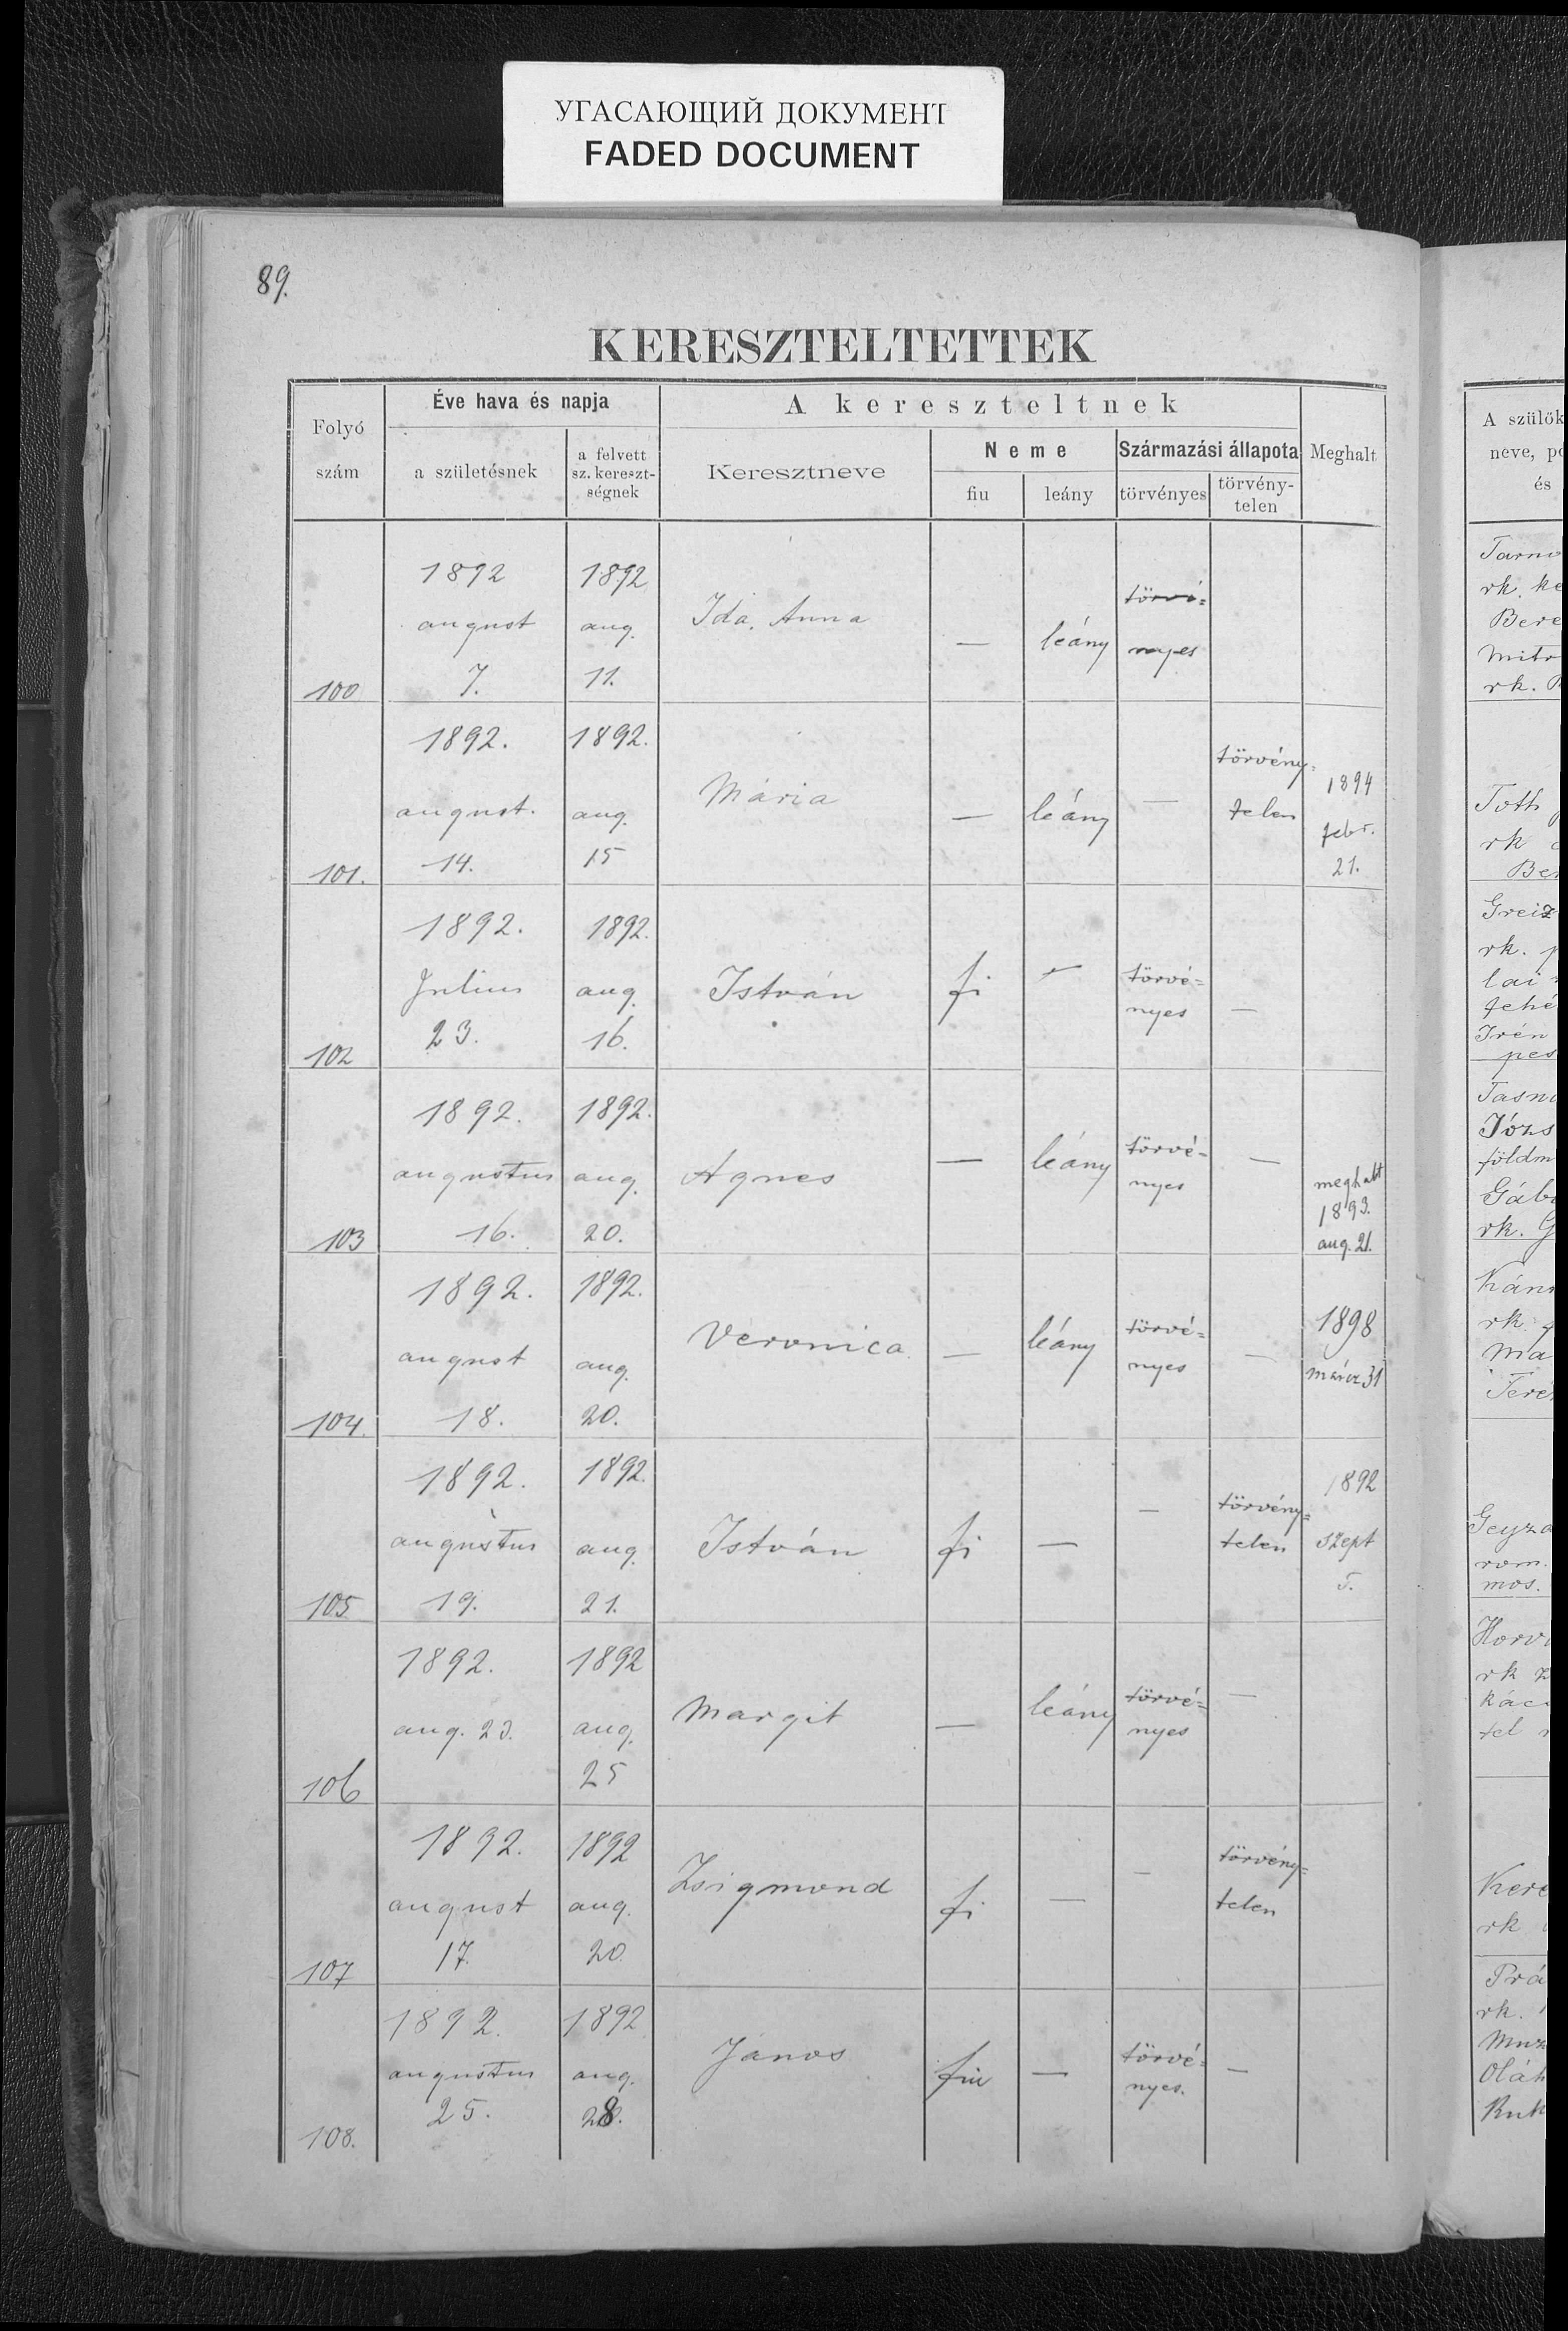 УГАСАЮЩИЙ ДОКУМЕНТ
FADED DOCUMENT
89.
KERESZTELTETTEK
Folyó szám
Éve hava és napja
a születésnek
a felvett sz. kereszt-ségnek
A kereszteltnek
Keresztneve
Neme
fiu
leány
Származási állapota
törvényes
törvény-telen
Meghalt
A szülők
neve,
és
100 1892 august 7. 1892 aug. 11. Ida, Anna — leány törvé=nyes
101. 1892. august. 14. 1892. aug. 15 Mária — leány — törvény=telen 1894 febr. 21.
102 1892. Julius 23. 1892. aug. 16. István fi — törvé=nyes —
103 1892. augustus 16. 1892. aug. 20. Agnes — leány törvé=nyes — meghalt 1893. aug. 21.
104. 1892. august 18. 1892. aug. 20. Veronica — leány törvé=nyes — 1898 márcz 31
105 1892. augustus 19. 1892. aug. 21. István fi — — törvény=telen 1892 szept 5.
106 1892. aug. 23. 1892 aug. 25 Margit — leány törvé=nyes —
107 1892. august 17. 1892 aug. 20. Zsigmond fi — — törvény=telen
108. 1892. augustus 25. 1892 aug. 28. János fiu — törvé=nyes. —
rk.
rk.
Toth
rk
rk.
Irén
rk.
rk
rk
rk
rk.